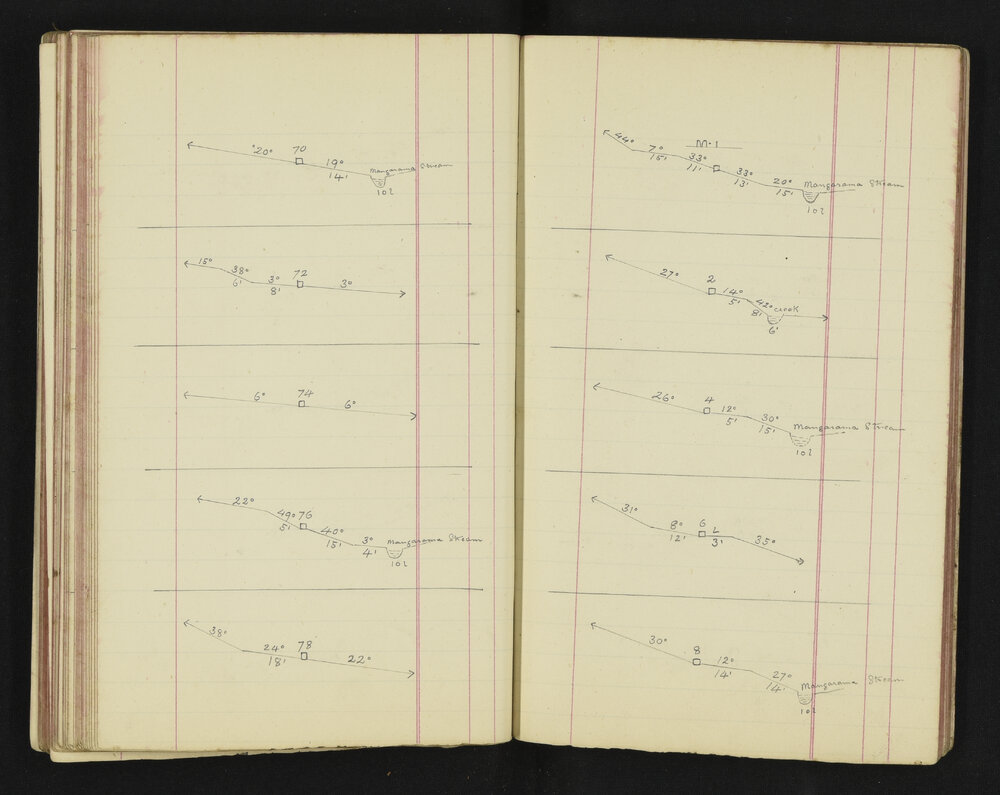 20° 70 19° 14' Mangarama Stream
10 l
15° 38° 6' 3° 8' 72 3°
6° 74 6°
22° 49° 5' 76 40° 15' 3° 4' Mangarama Stream
10 l
38° 24° 18' 78 22°
M.1
44° 7° 15' 33° 11' 33° 13' 20° 15' Mangarama Stream
10 l
27° 2 14° 5' 42° 8' creek
6'
26° 4 12° 5' 30° 15' Mangarama Stream
10 l
31° 8° 12' 6 L 3' 35°
30° 8 12° 14' 27° 14' Mangarama Stream
10 l